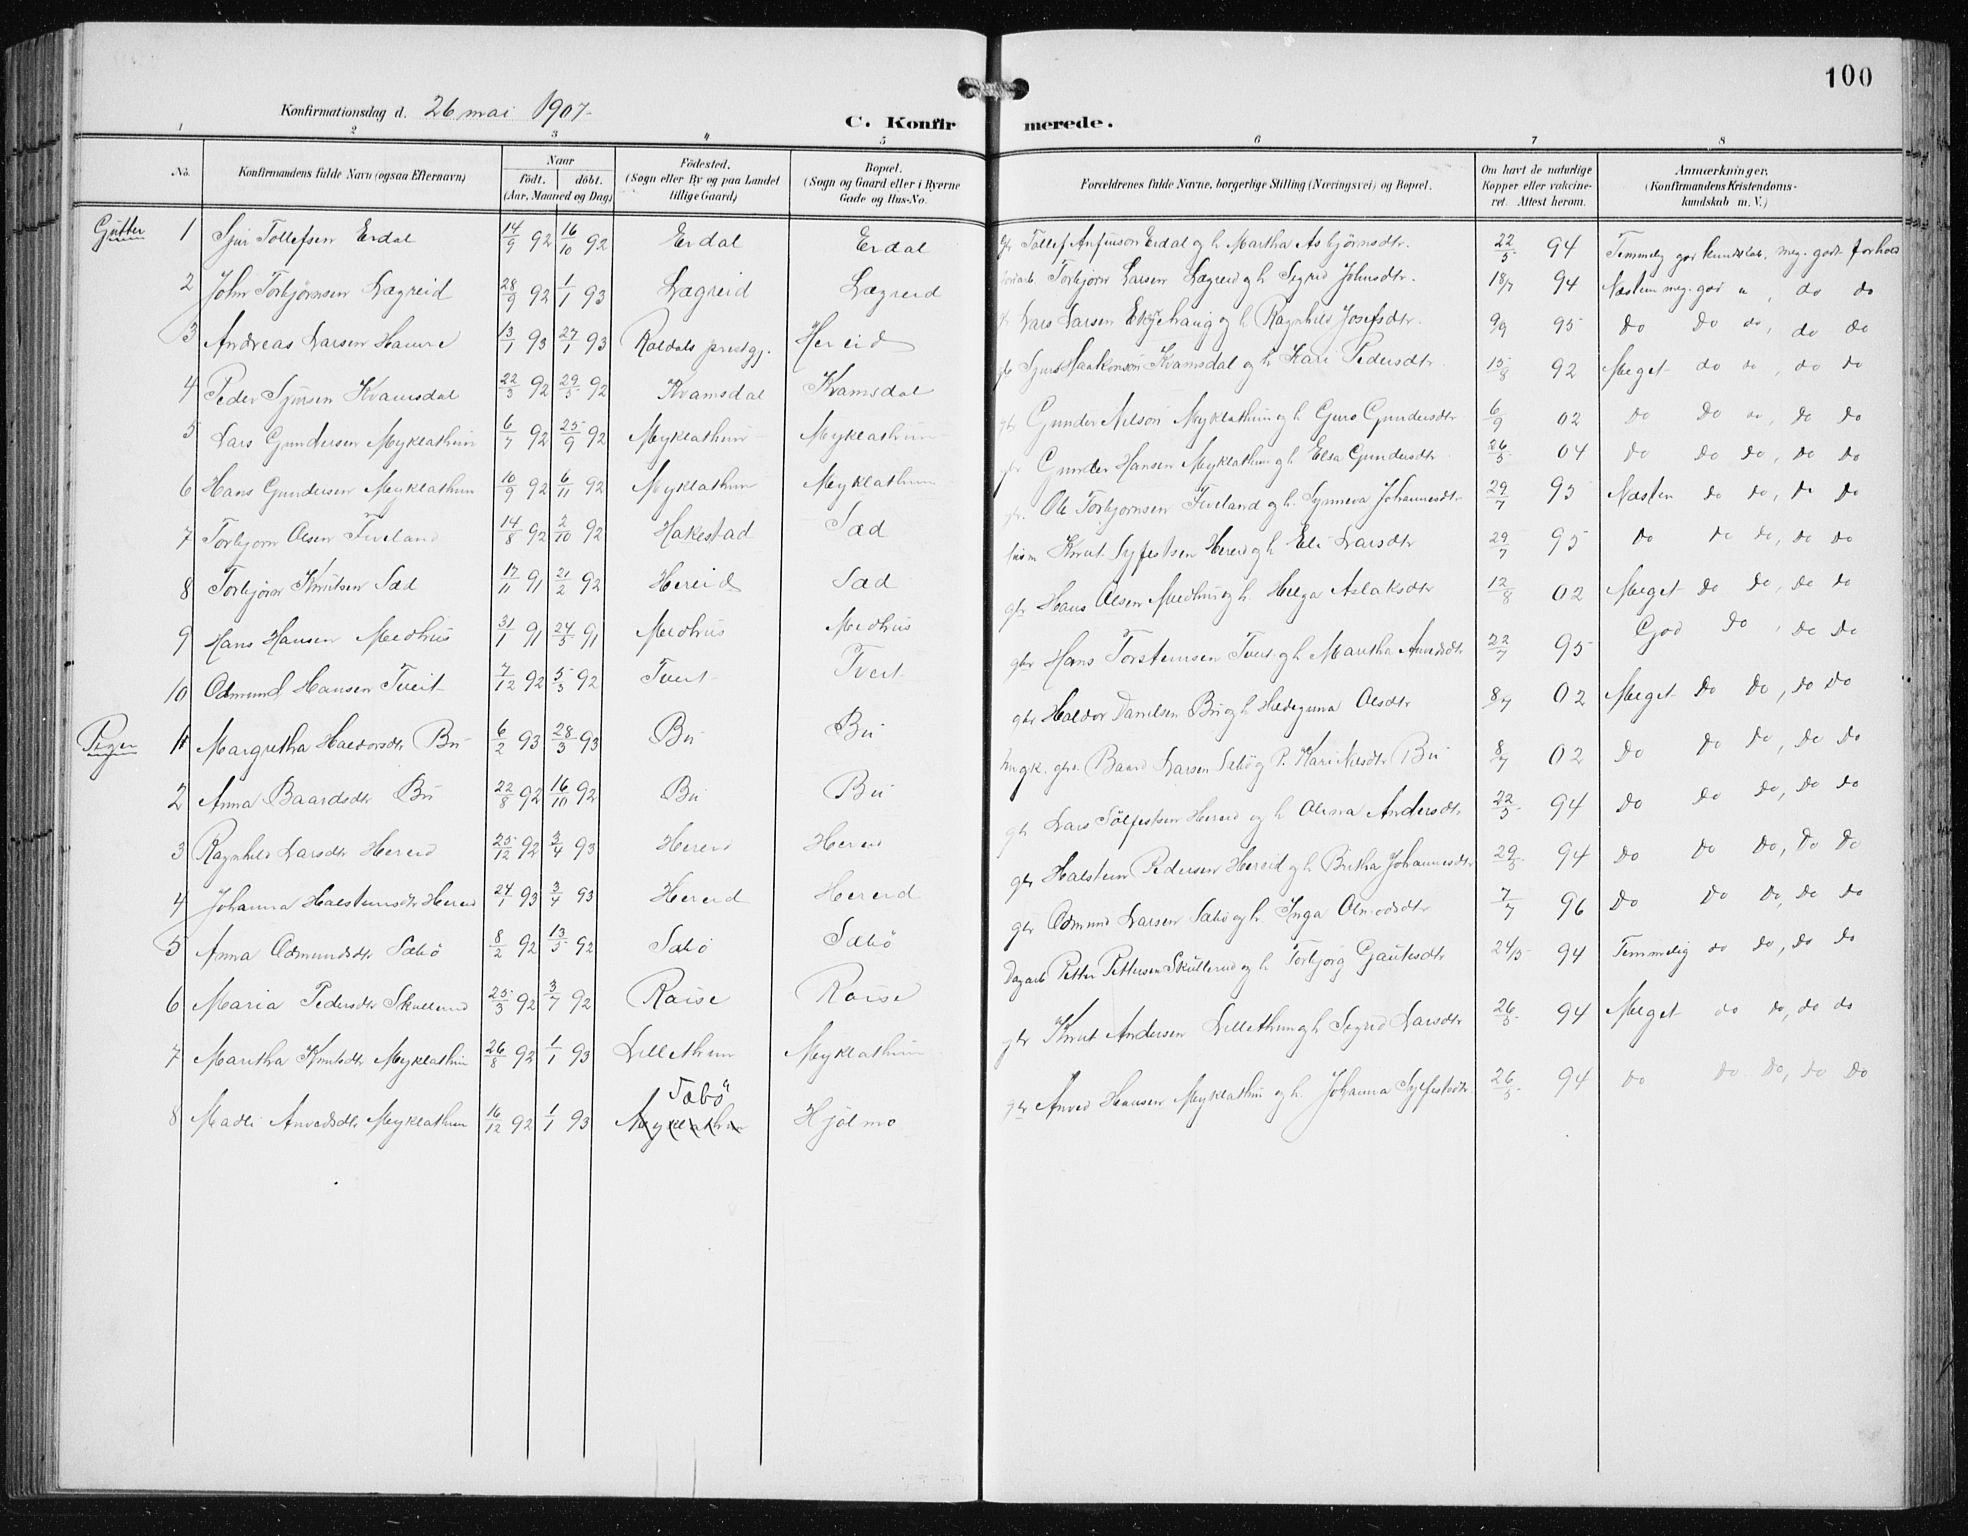 100
Konfirmationsdag d. 26 mai 1907.
C. Konfir merede.
1 2 3 4 5 6 7 8
No. Konfirmandens fulde Navn (ogsaa Efternavn) Naar födt. döbt. (Aar, Maaned og Dag) Födested. (Sogn eller By og paa Landet tillige Gaard) Bopæl. (Sogn og Gaard eller i Byerne Gade og Hus-No. Forældrenes fulde Navne, borgerlige Stilling (Næringsvei) og Bopæl. Om havt de naturlige Kopper eller vakcineret. Attest herom. Anmærkninger. (Konfirmandens Kristendomskundskab m. V.)
Gutter 1 Sjur Tollefsen Erdal 14/9 92 16/10 92 Erdal Erdal Tollef Anfinson Erdal og h. Martha Asbjörnsdtr. 22/5 94 Temmelig god kundskab, meg. godt forhold
2 John Torbjörnsen Lægreid 28/9 92 1/1 93 Lægreid Lægreid Torbjörn Larsen Lægreid og h. Sigrid Johnsdtr. 18/7 94 Næsten meg. god u, do do
3 Andreas Larsen Hamre 13/1 93 27/1 93 Roldals prestgj. Hereid Lars Larsen og h. Ragnhild Josefsdtr. 9/9 95 Do Do do, do do
4 Peder Sjursen Kvamsdal 22/3 92 29/5 92 Kvamsdal Kvamsdal gbr Sjur Haakonson Kvamsdal og h Kari Pedersdtr. 15/8 92 Meget do do, do do
5 Lars Gundersen Myklathun 6/7 92 25/9 92 Myklathun Myklathun gbr Gunder Nilson Myklathun og h. Guro Gundersdtr 6/9 02 do Do do, do do
6 Hans Gundersen Myklathun 10/9 92 6/11 92 Myklathun Myklathun gbr Gunder Hansen Myklathun og h. Elsa Gundersdtr. 26/5 04 do Do do, do do
7 Torbjorn Olsen Tveland 14/8 92 2/10 92 Hakestad Sæd Ole Torbjornsen Tveland og h. Synneva Johannesdtr. 29/7 95 Næsten do do, do do
8 Torbjörn Knutsen Sæd 17/11 91 21/2 92 Hereid Sæd husm Knut Syfestsen Hereid og h Eli Larsdtr 29/7 95 do do do, do do
9 Hans Hansen Medhus 31/1 91 24/5 91 Medhus Medhus gbr Hans Olsen Medhus og h. Helga Aslaksdtr 12/8 02 Meget do do, do do
10 Odmund Hansen Tveit 7/12 92 5/3 92 Tveit Tveit gbr Hans Torsteinsen Tveit og h Maritha Anvedsdtr 22/7 95 God do, do do
Piger 1 Margretha Haldorsdtr Bu 6/2 93 28/3 93 Bu Bu gbr Haldor Danielsen Bu og h Hildeguna Olsdtr 8/7 02 Meget Do Do, do do
2 Anna Baardsdtr Bu 22/8 92 16/10 92 Bu Bu Baard Larsen Sæbö og P. Kari Nilsdtr Bu 8/7 02 Do Do do, do do
3 Ragnhild Larsdtr Hereid 25/12 92 3/4 93 Hereid Hereid gbr Lars Sölfestsen Hereid og h Olina Andersdtr 22/5 94 do do do, do do
4 Johanna Halsteinsdtr Hereid 24/1 93 3/4 93 Hereid Hereid gbr Halstein Pedersen Hereid og h Britha Johannesdtr 29/5 94 Do do do, do do
5 Anna Odmundsdtr Sæbö 8/2 92 13/5 92 Sæbö Sæbö gbr Odmund Larsen Sæbö og h. Inga Olmodsdtr 7/7 96 Do Do do, do do
6 Maria Pedersdtr Skullerud 25/3 92 3/7 92 Røise Røise Dagarb Petter Pettersen Skullerud og h Torbjörg Gautesdtr 24/5 94 Temmelig do do, do do
7 Maritha Knutsdtr Myklathun 26/8 92 1/1 93 Lillethun Myklathun gbr Knut Andersen Lillethun og h Sigrid Larsdtr 26/5 94 Meget do do, do do
8 Madli Anvedsdtr Myklathun 16/12 92 1/1 93 Myklathun Sæbö Hjölmo gbr Anved Hansen Myklathun og h. Johanna Syfestsdtr. 26/5 94 do do do, do do